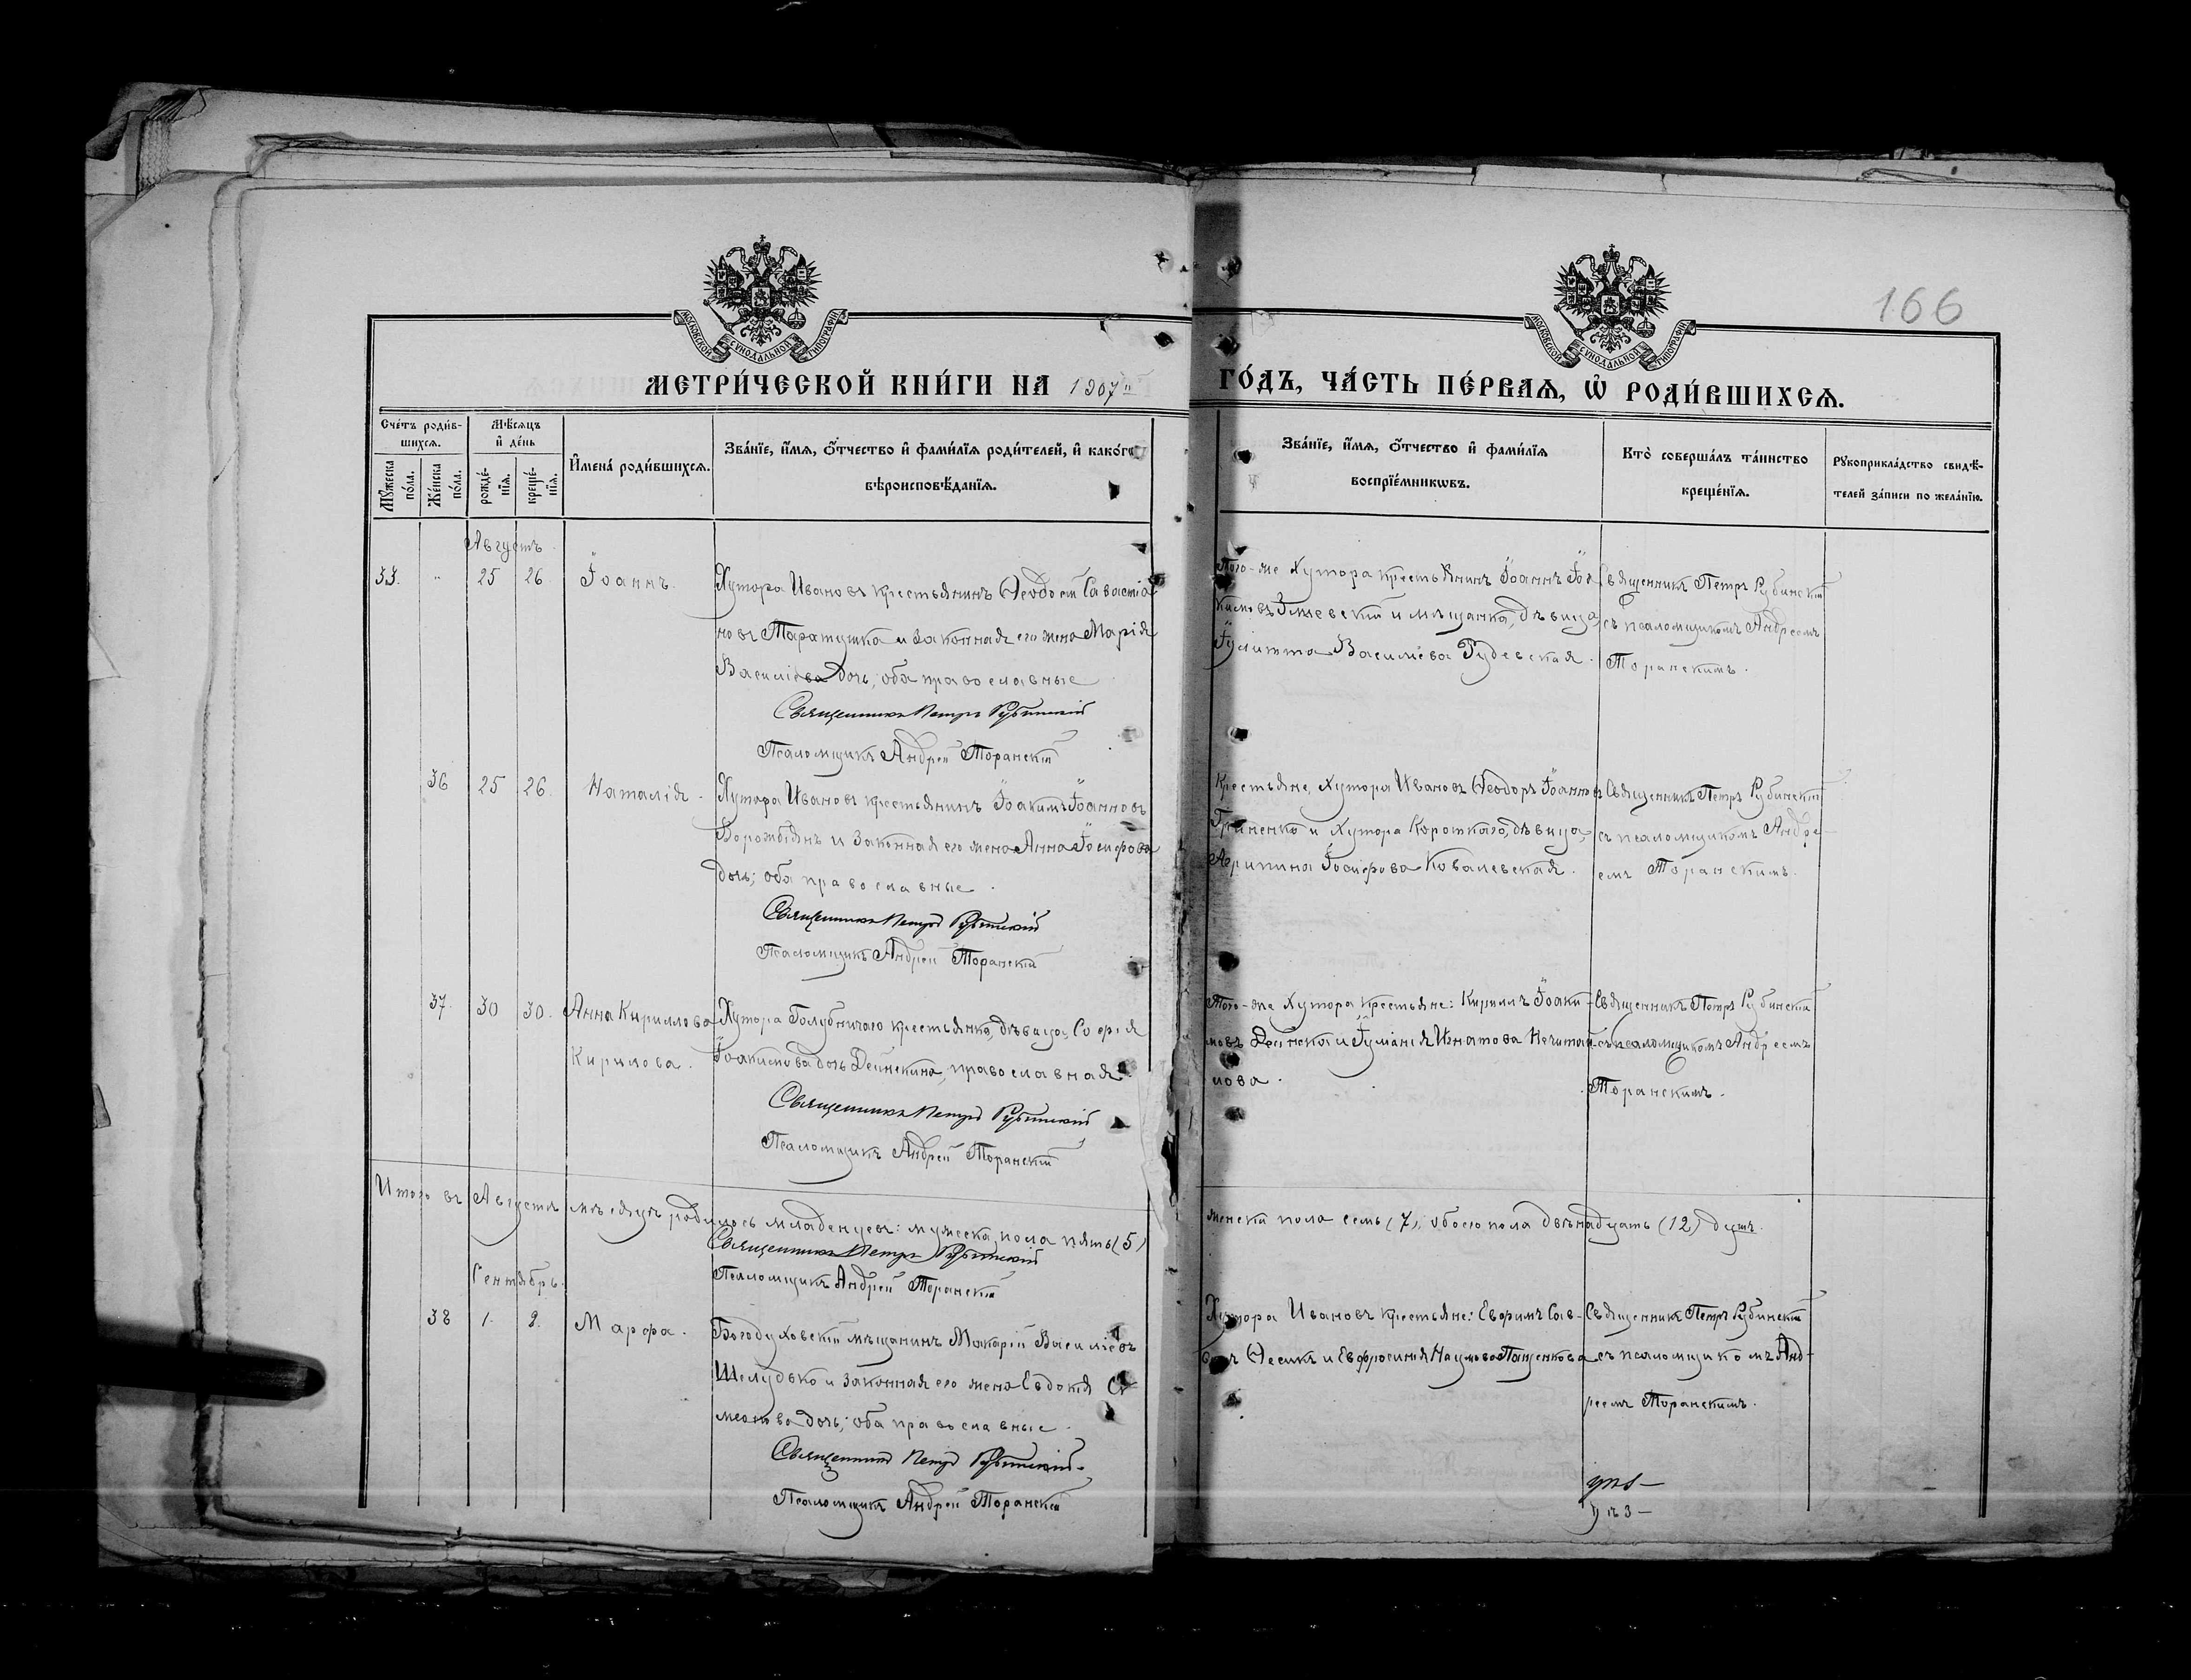 166
МОСКОВСКОЙ СѴНОДАЛЬНОЙ ТИПОГРАФІИ
МОСКОВСКОЙ СѴНОДАЛЬНОЙ ТИПОГРАФІИ
МЕТРИ́ЧЕСКОЙ КНИ́ГИ НА 1907й ГО́ДЪ, ЧА́СТЬ ПЕ́РВАѦ, Ѡ҆ РОДИ́ВШИХСѦ.
Сче́тъ роди́в-
шихсѧ.
Мѣ́сѧцъ
и҆ де́нь
Мꙋ́жеска
по́ла.
Же́нска
по́ла.
рожде́-
нїѧ.
креще́-
нїѧ.
И҆мена̀ роди́вшихсѧ.
Зва́нїе, и҆́мѧ, ѻ҆́тчество и҆ фами́лїѧ роди́телей, и҆ како́гѡ
вѣроисповѣ́данїѧ.
Зва́нїе, и҆́мѧ, ѻ҆́тчество и҆ фами́лїѧ
воспрїе́мникѡвъ.
Кто̀ соверша́лъ та́инство
креще́нїѧ.
Рꙋкоприкла́дство свидѣ́-
телей за́писи по жела́нїю.
Августъ
33. " 25 26 Іоаннъ.
Хутора Ивановъ крестьянинъ Ѳеодосій Савастіа
новъ Таратушка и законная его жена Марія
Василіева дочь, оба православные
Священникъ Петръ Рубинскій
Псаломщикъ Андрей Торанскій
Того-же Хутора крестьянинъ Іоаннъ Іоа
кимовъ Змѣевскій и мѣщанка, дѣвица,
Іулитта Васильева Рудевская.
Священникъ Петръ Рубинскій
съ псаломщикомъ Андреемъ
Торанскимъ.
36 25 26. Наталія.
Хутора Ивановъ крестьянинъ Іоакимъ Іоанновъ
Ворожбіянъ и законная его жена Анна Іосифова
дочь; оба православные.
Священникъ Петръ Рубинскій
Псаломщикъ Андрей Торанскій
Крестьяне, Хутора Ивановъ Ѳеодоръ Іоанновъ
Гриненко и Хутора Короткаго, дѣвица,
Агрипина Іосифова Ковалевская.
Священникъ Петръ Рубинскій
съ псаломщикомъ Андре-
емъ Торанскимъ.
37. 30 30. Анна Кириллова
Кирилова.
Хутора Голубничаго крестьянка, дѣвица, Софія
Іоакимова дочь Дейнекина, православная.
Священникъ Петръ Рубинскій
Псаломщикъ Андрей Торанскій
Того-же Хутора, крестьяне: Кириллъ Іоаки-
мовъ Дейнека и Іуліанія Игнатова Нечитай-
лова.
Священникъ Петръ Рубинскій
съ псаломщикомъ Андреемъ
Торанскимъ.
Итого въ Августѣ мѣсяцѣ родилось младенцевъ: мужеска пола пять (5)
женска пола семь (7), обоего пола двѣнадцать (12) душъ.
Священникъ Петръ Рубинскій
Псаломщикъ Андрей Торанскій
Сентябрь.
38 1. 2. Марфа.
Богодуховскій мѣщанинъ Макарій Василіевъ
Шелудько и законная его жена Евдокія Си
меонова дочь; оба православные.
Священникъ Петръ Рубинскій.
Псаломщикъ Андрей Торанскій
Хутора Ивановъ крестьяне: Евфимъ Сав-
Ѳесикъ и Евфросинія Наумова Пащенкова
Священникъ Петръ Рубинскій
съ псаломщикомъ Анд-
реемъ Торанскимъ.